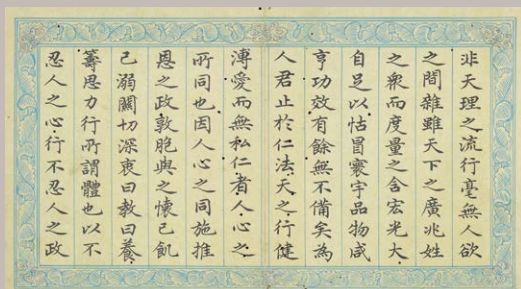 非天理之流行毫無人欲
之間雜雖天下之廣兆姓
之衆而度量之含宏光大
自足以怙冒寰宇品物咸
亨功效有餘無不備矣為
人君止於仁法天之行健
溥愛而無私仁者人心之
所同也因人心之同施推
恩之政敦胞與之懷己飢
己溺關切深衷曰教曰養
籌思力行所謂體也以不
忍人之心行不忍人之政